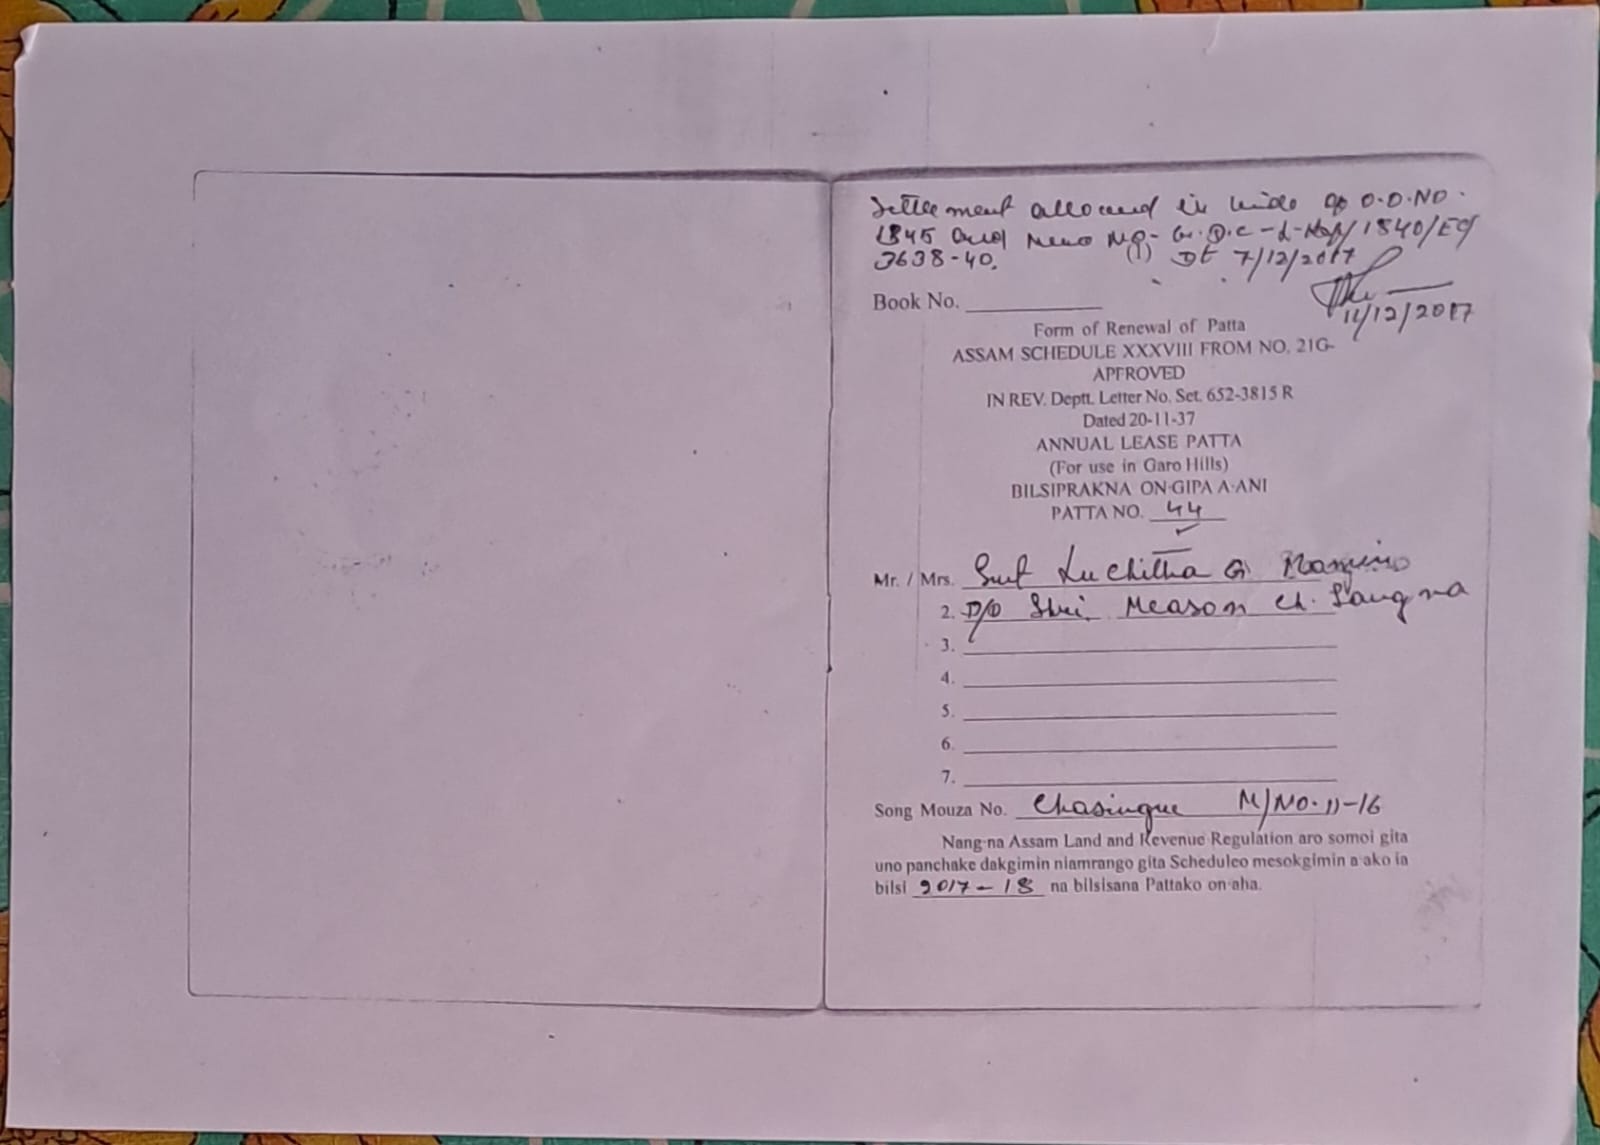 Settlement allowed in vide of O.O.NO.
1845 and Memo No- G.D.C-L-
3638-40. (1) Dt 7/12/2017
11/12/2017
Book No.
Form of Renewal of Patta
ASSAM SCHEDULE XXXVIII FROM NO. 21G-
APPROVED
IN REV. Deptt. Letter No. Set. 652-3815 R
Dated 20-11-37
ANNUAL LEASE PATTA
(For use in Garo Hills)
BILSIPRAKNA ON·GIPA A·ANI
PATTA NO. 44
Mr. / Mrs. Smt Luchitha G
2. D/O Shri. Meason Ch. Sangma
3.
4.
5.
6.
7.
Song Mouza No. Chasingre M/NO. II-16
Nang·na Assam Land and Revenue Regulation aro somoi gita
uno panchake dakgimin niamrango gita Scheduleo mesokgimin a·ako ia
bilsi 2017-18 na bilsisana Pattako on·aha.